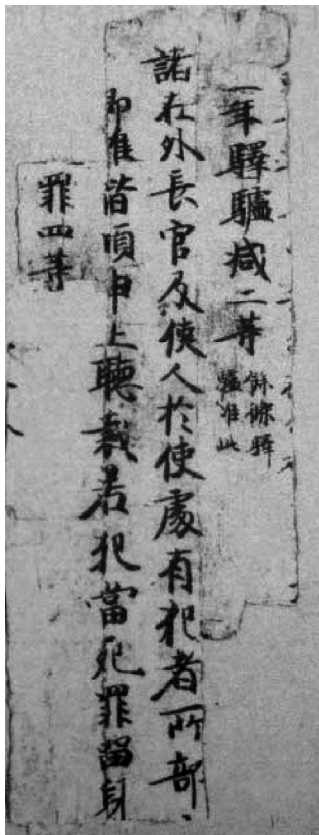 一年驛驢减二等餘條驛
驢准此
諸在外長官及使人於使處有犯者所部
即推皆須申上聽裁若犯當死罪留身
罪四等